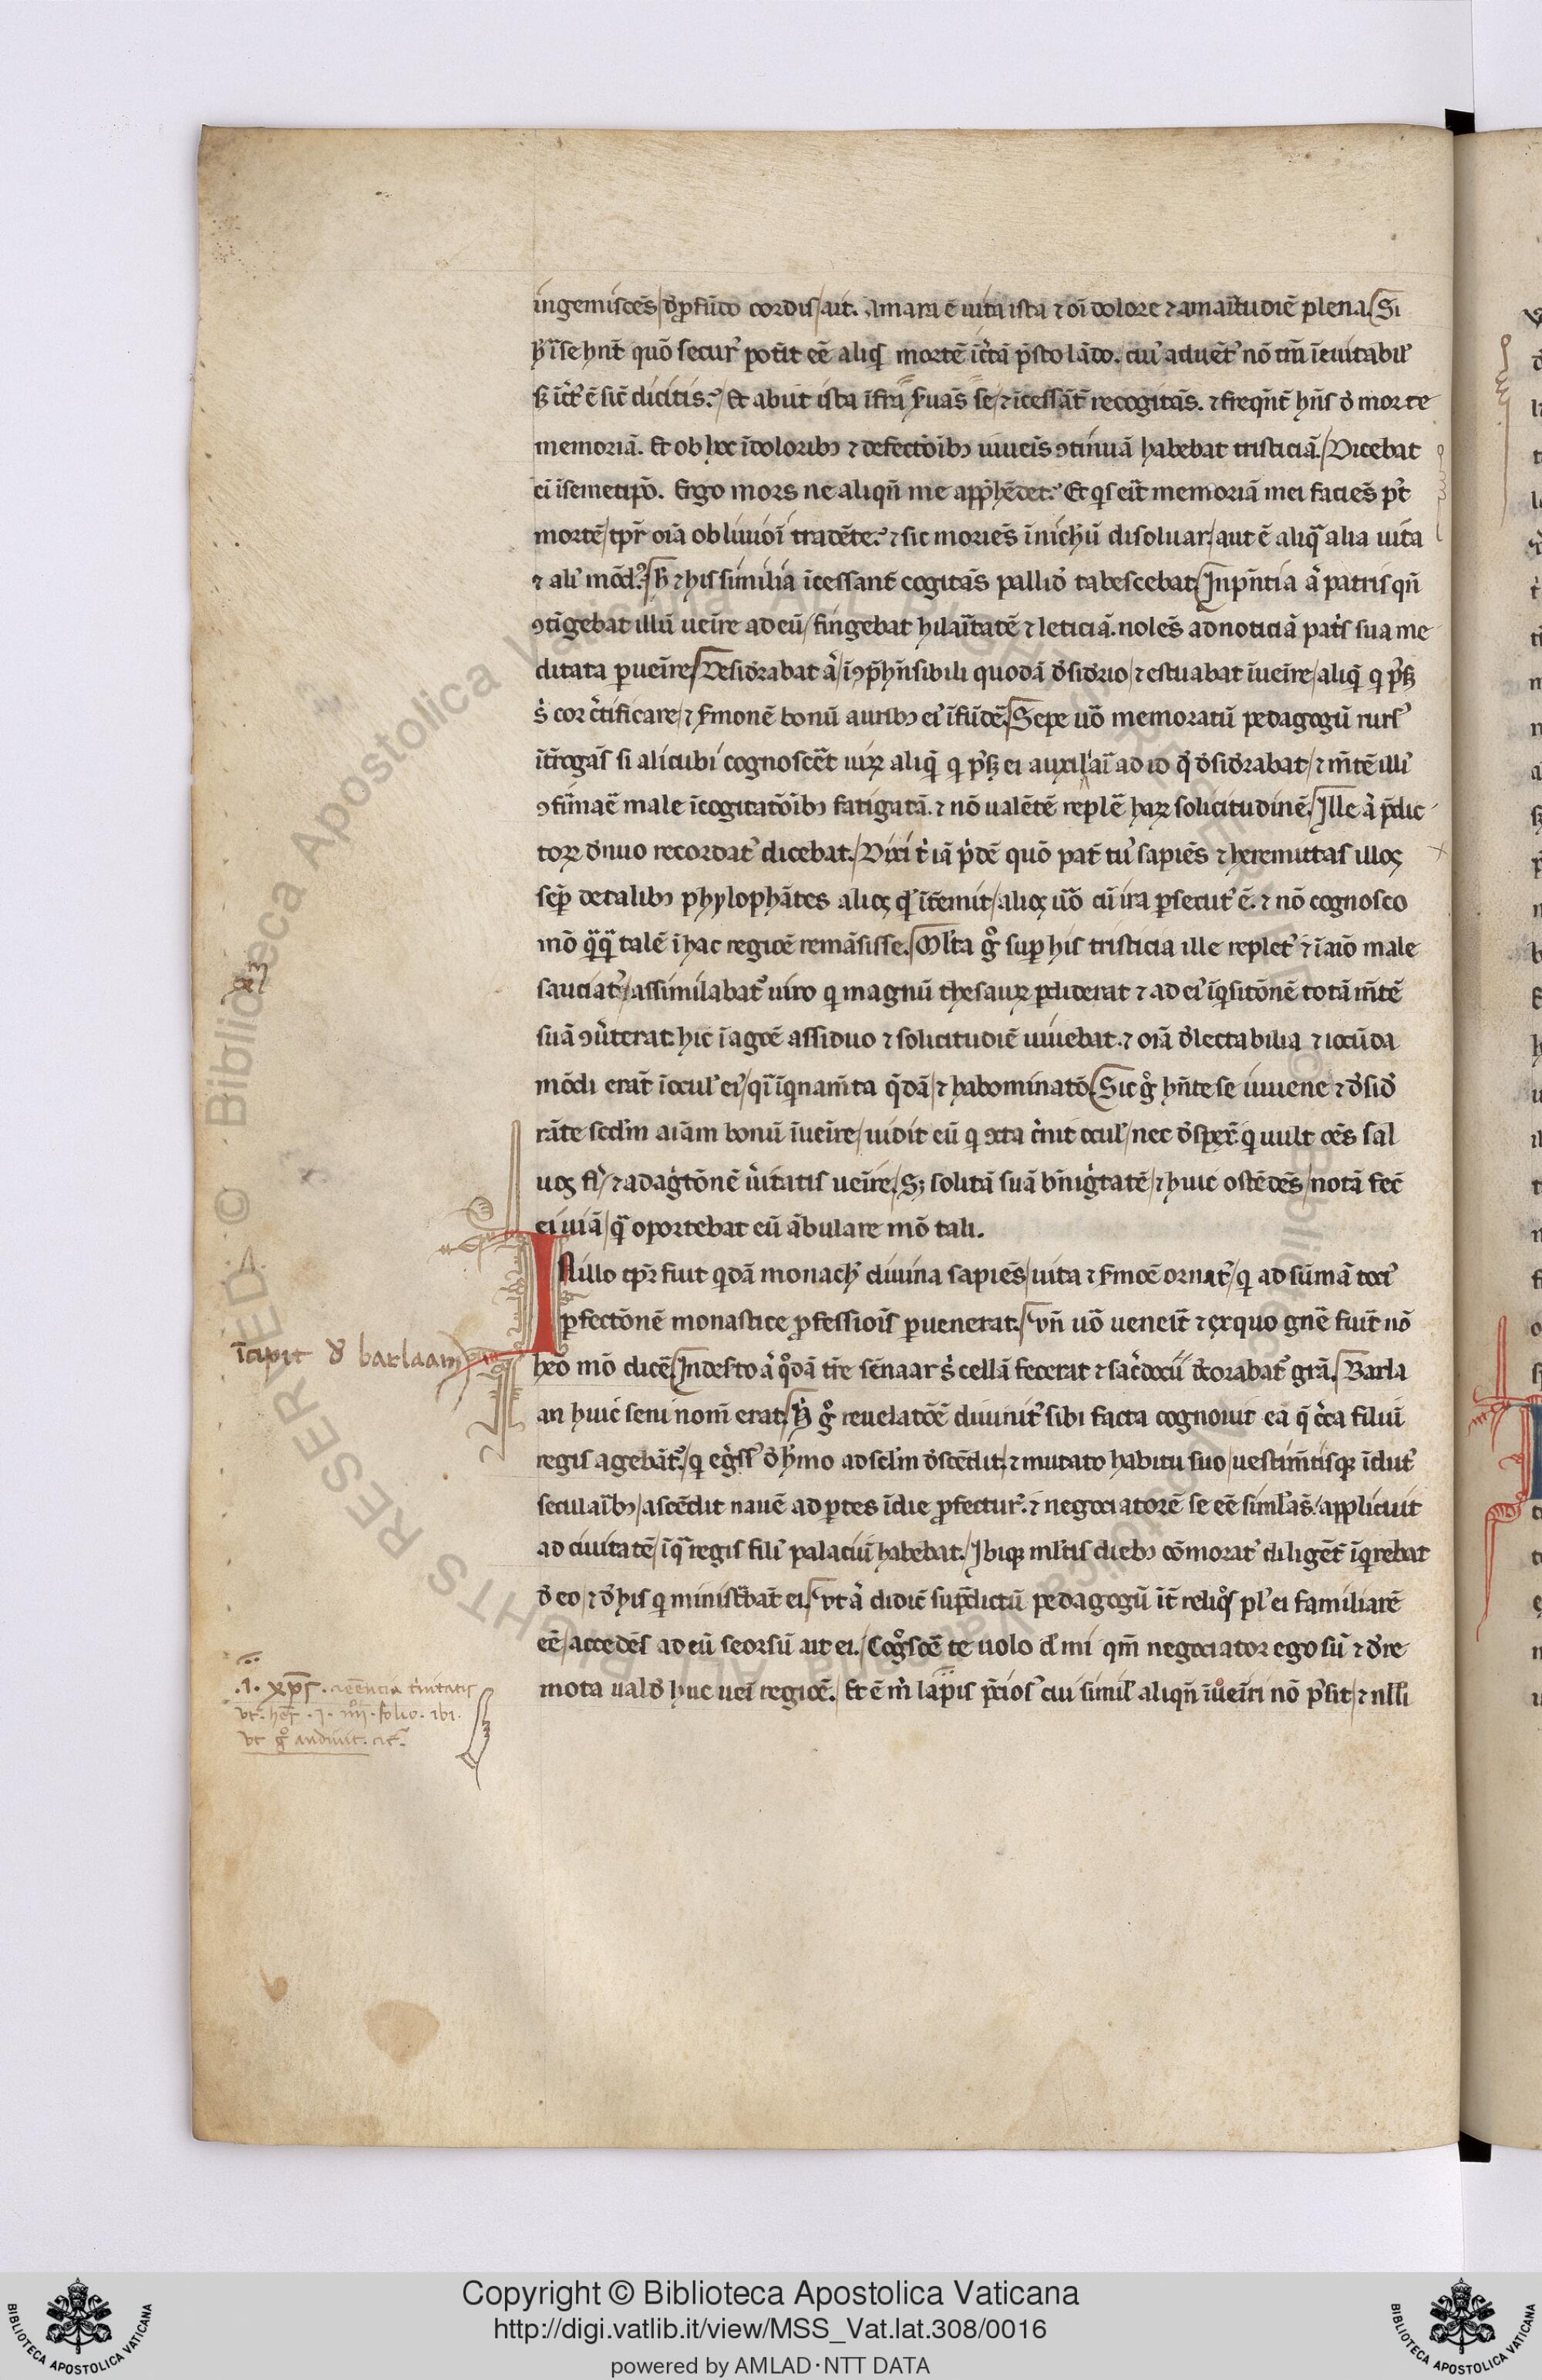 ingemiscēs / d̄ p̄fūdo cordis / ait. Amara ē uita ista ⁊ oī dolore ⁊ amaritudīe plena. Si
h̄ īse hn̄t quō secur᾽ pot̄it eē aliq̄s mortē īc̄tā p̄stolādo. cui᾽ aduēt᾽ nō tm̄ īeuitabil᾽
sꝫ īc̄t᾽ ē sic̄ dicitis? / Et abiit ista īfra s̄uās se / ⁊ īcessāt̄ recogitās. ⁊ freqn̄t̄ hn̄s d̄ morte
memoriā. Et ob hoc ī dolorib᾽ ⁊ defectōib᾽ uiuēs ꝯtinuā habebat tristiciā. / Dicebat
ei īsemetip̄o. Ergo mors ne aliqn̄ me app̄hēdet? Et q̄s eit̄ memoriā mei faciēs p᾽t
mortē / tp̄r oīa obliuiōī tradēte? ⁊ sic moriēs īnichū disoluar / aut ē aliq̄ alia uita
⁊ ali᾽ mōd᾽? h̄ ⁊ his similia īcessant̄ cogitās pallid᾽ tabescebat. In p̄n̄tia ā patris qn̄
ꝯtīgebat illū ueīre ad eū / fingebat hilaītatē ⁊ leticiā. nolēs ad noticiā pat̄s sua me
ditata p̄ueīre / Desid̄rabat ā / īꝯp̄hn̄sibili quodā d̄sid̄rio / ⁊ estuabat īueīre / aliq̄ q̄ p᾽sꝫ
s̄ cor c̄tificare / ⁊ s̄monē bonū aurib᾽ ei᾽ īfūdē. Sepe uō memoratū pedagogū rurs᾽
īt̄rogās si alicubi cognoscēt̄ uiꝝ aliq̄ q̄ p᾽sꝫ ei auxiliāī ad id q̄ d̄sid̄rabat / ⁊ m̄tē illi᾽
ꝯfīmaē male ī cogitatōib᾽ fatigatā. ⁊ nō ualētē replē haꝝ solicitudinē. Ille ā p̄dic
toꝝ d̄nuo recordat᾽ dicebat. / Dixi t̄ iā p̄dē quō pat̄ tu᾽ sapiēs ⁊ heremittas illos
sēp̄ de talib᾽ phylophātes alios q̄ īt̄emit / alios uō cū ira p̄secut᾽ ē. ⁊ nō cognosco
mō q̄q̄ talē ī hac regiōē remāsisse. Ml̄ta g̊ sup̄ his tristicia ille replet᾽ ⁊ ī aīo male
sauciat᾽ / assimilabat᾽ uiro q̄ magnū thesauꝝ p̄diderat ⁊ ad ei᾽ īq̄sitōnē totā m̄tē
suā ꝯūterat. hic ī agōē assiduo ⁊ solicitudīē uiuebat. ⁊ oīa d̄lectabilia ⁊ iocūda
mōdi erāt īocul᾽ ei᾽ / q̄ī īq̄nam̄ta q̄dā / ⁊ habominatō. Sic g̊ hn̄te se iuuene ⁊ d̄sid̄
rāte sed̄m aīam bonū īueīre / uidit eū q̄ ꝯcta c̄nit ocul᾽ / nec d̄spex̄ q̄ uult oēs sal
uos fī / ⁊ ad agītōnē ūitatis ueīre / Sꝫ solitā suā b̄nigītatē / ⁊ huic ostēdēs / notā fec̄
ei uiā / q̄ oportebat eū ābulare mō tali.
In illo tp̄r fuit q̄dā monach᾽ diuina sapiēs / uita ⁊ s̄mōē ornat᾽ / q̄ ad sūmā toci᾽
p̄fectōnē monastice p̄fessioīs p̄uenerat. Vn̄ uō uenēit̄ ⁊ ex quo gnē fuīt nō
heō mō dicē. In des̄to ā q̊dā t̄re sēnaar s̄ cellā fecerat ⁊ sac̄docīī d̄corabat᾽ grā. Barla
an huic seni nom̄ erat. h̄ g̊ reuelatōē diuinit᾽ sibi facta cognouit ea q̄ c̄ca filiuī
regis agebāt᾽. / q̄ eḡss᾽ d̄ h̄mo ad sc̄lm d̄scēdit / ⁊ mutato habitu suo / uestim̄tisq̄ īdut᾽
seculaīb᾽ / ascēdit nauē ad p̄tes īdie p̄fectur᾽. ⁊ negociatorē se eē siml᾽ās. applicuit
ad ciuitatē / ī q̄ regis fili᾽ palaciuī habebat. / Ibiq̄ ml̄tis dieb᾽ cōmorat᾽ diligēt̄ īq̄rebat
d̄ eo / ⁊ d̄ his q̄ minist̄bāt ei. Vt ā didic̄ sup̄dictū pedagogū īt̄ reliq̊s pl᾽ ei familiarē
eē / accedēs ad eū seorsū ait ei. / Cog̊scē te uolo d̄ mi qm̄ negociator ego sū ⁊ d̄ re
mota uald̄ huc uēī regiōē. / Et ē m̄ lapis p̄cios᾽ cui simil᾽ aliqn̄ īueīri nō p᾽sit / ⁊ nll̄i
īcipit d̄ barlaam
.1. xp̄s. ⁊ eēncia t̄nitatis
vt. hēr .1. iiij. folio. ibi.
vt g̊ audiuit. etc̄.
Copyright © Biblioteca Apostolica Vaticana
http://digi.vatlib.it/view/MSS_Vat.lat.308/0016
powered by AMLAD·NTT DATA
BIBLIOTECA APOSTOLICA VATICANA
BIBLIOTECA APOSTOLICA VATICANA